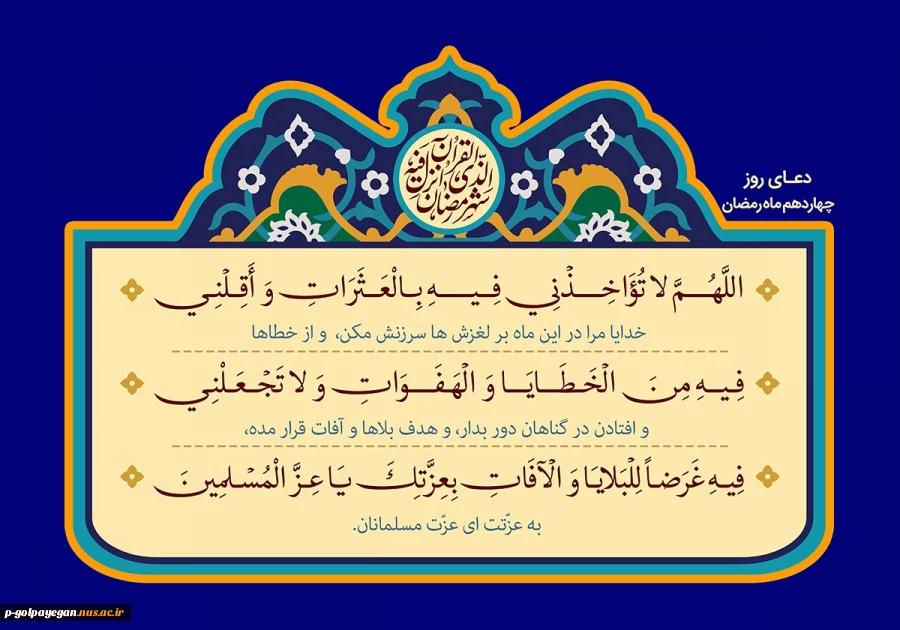 شهر رمضان الذی انزل فیه القرآن
دعای روز
چهاردهم ماه رمضان
اللَّهُمَّ لا تُؤَاخِذْنِي فِيهِ بِالْعَثَرَاتِ وَ أَقِلْنِي
خدایا مرا در این ماه بر لغزش ها سرزنش مکن، و از خطاها
فِيهِ مِنَ الْخَطَايَا وَ الْهَفَوَاتِ وَ لا تَجْعَلْنِي
و افتادن در گناهان دور بدار، و هدف بلاها و آفات قرار مده،
فِيهِ غَرَضاً لِلْبَلايَا وَ الْآفَاتِ بِعِزَّتِكَ يَا عِزَّ الْمُسْلِمِينَ
به عزّتت ای عزّت مسلمانان.
p-golpayegan.nus.ac.ir